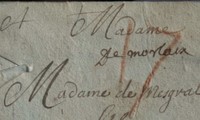 A Madame
de morlaix
Madame de Mesgral